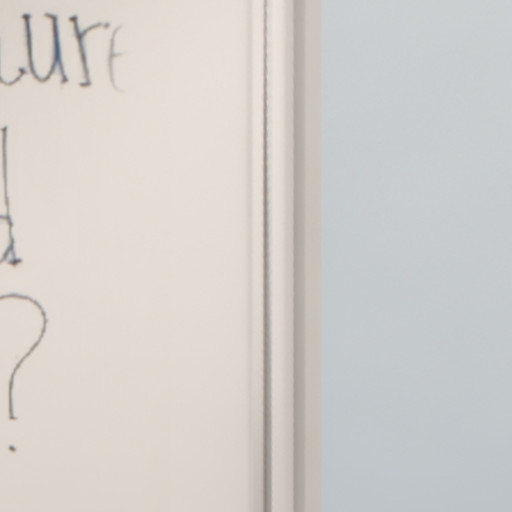 ure
d
?